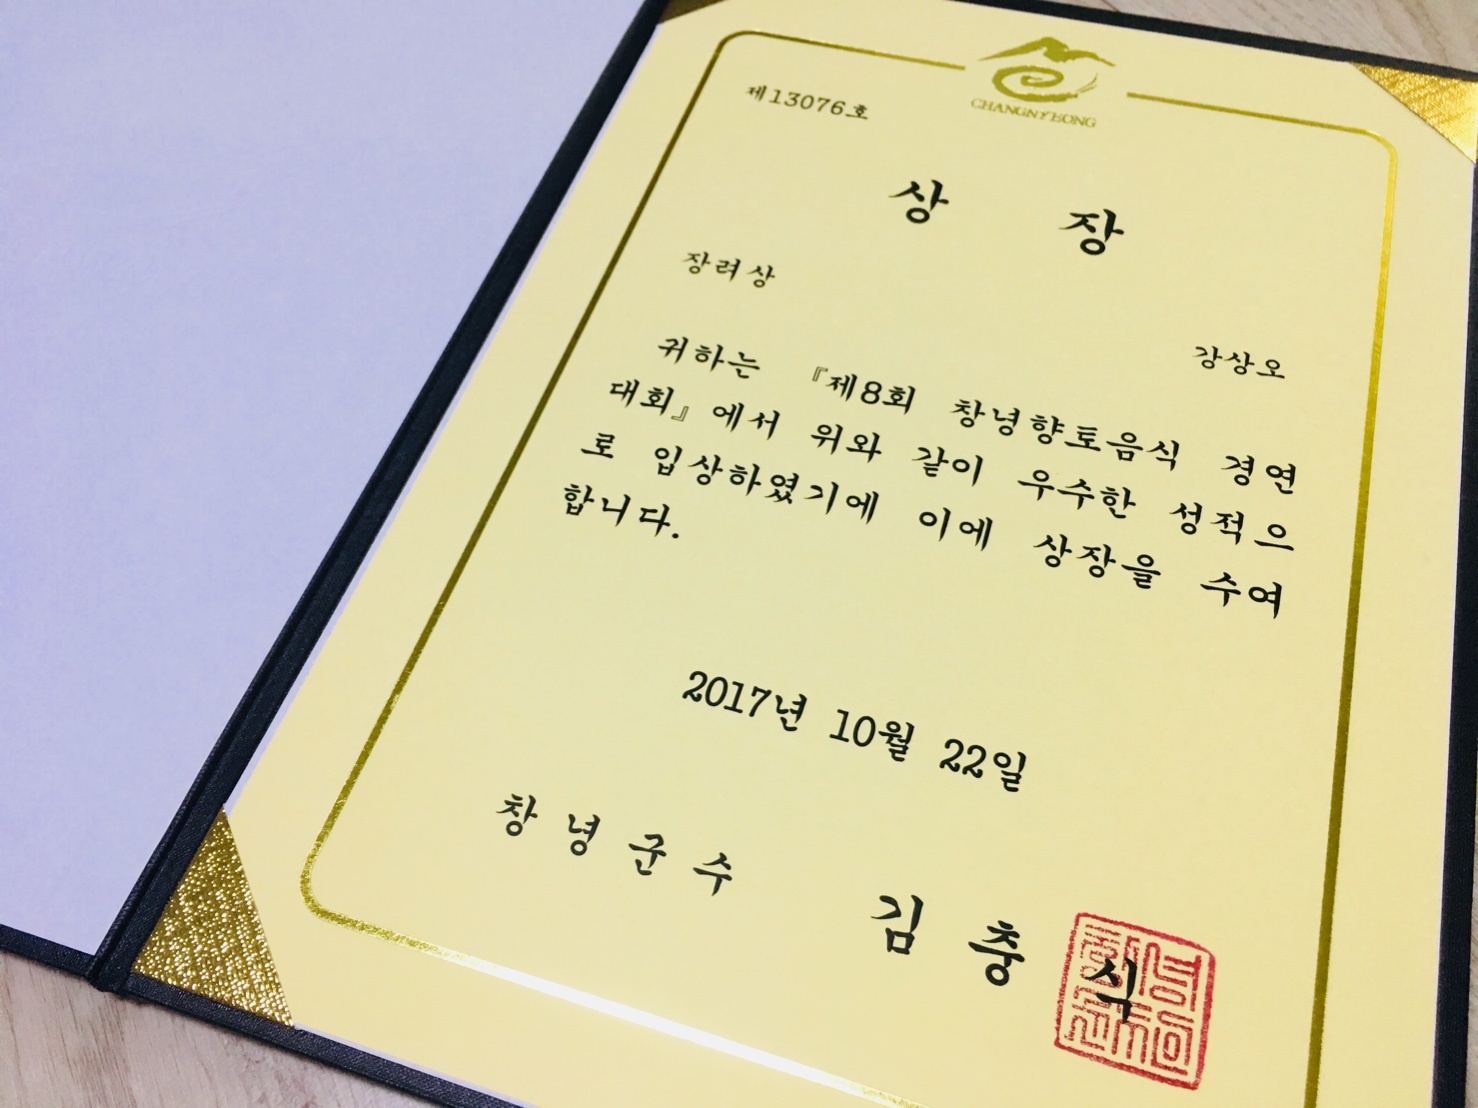 제13076호
CHANGNYEONG
상 장
장려상
강상오
귀하는 『제8회 창녕향토음식 경연
대회』에서 위와 같이 우수한 성적으
로 입상하였기에 이에 상장을 수여
합니다.
2017년 10월 22일
창녕군수 김충식